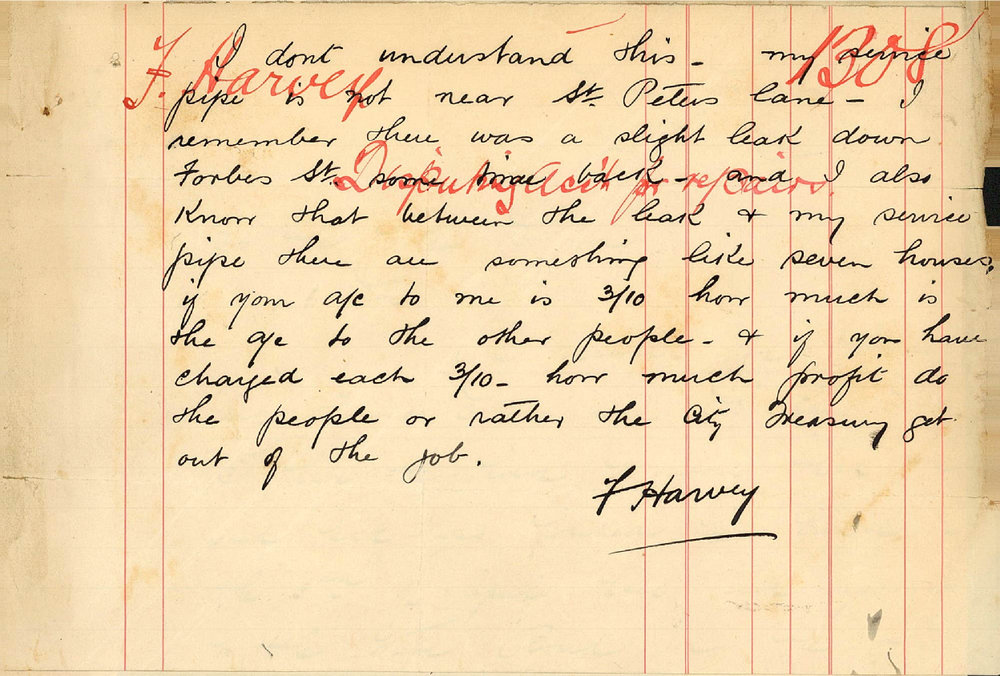 F. Harvey
1308
I dont understand this - my service
pipe is not near St. Peters lane - I
remember there was a slight leak down
Disputing a/c for repairs
Forbes St. some time back - and I also
Know that between the leak & my service
pipe there are something like seven houses.
if your a/c to me is 3/10 how much is
the a/c to the other people - & if you have
charged each 3/10 - how much profit do
the people or rather the City Treasury get
out of the job.
F Harvey